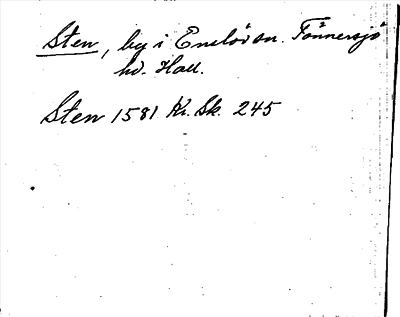 Sten, by i Enslöv sn. Tönnersjö
hd. Hall.
Sten 1581 Kr. Sk. 245